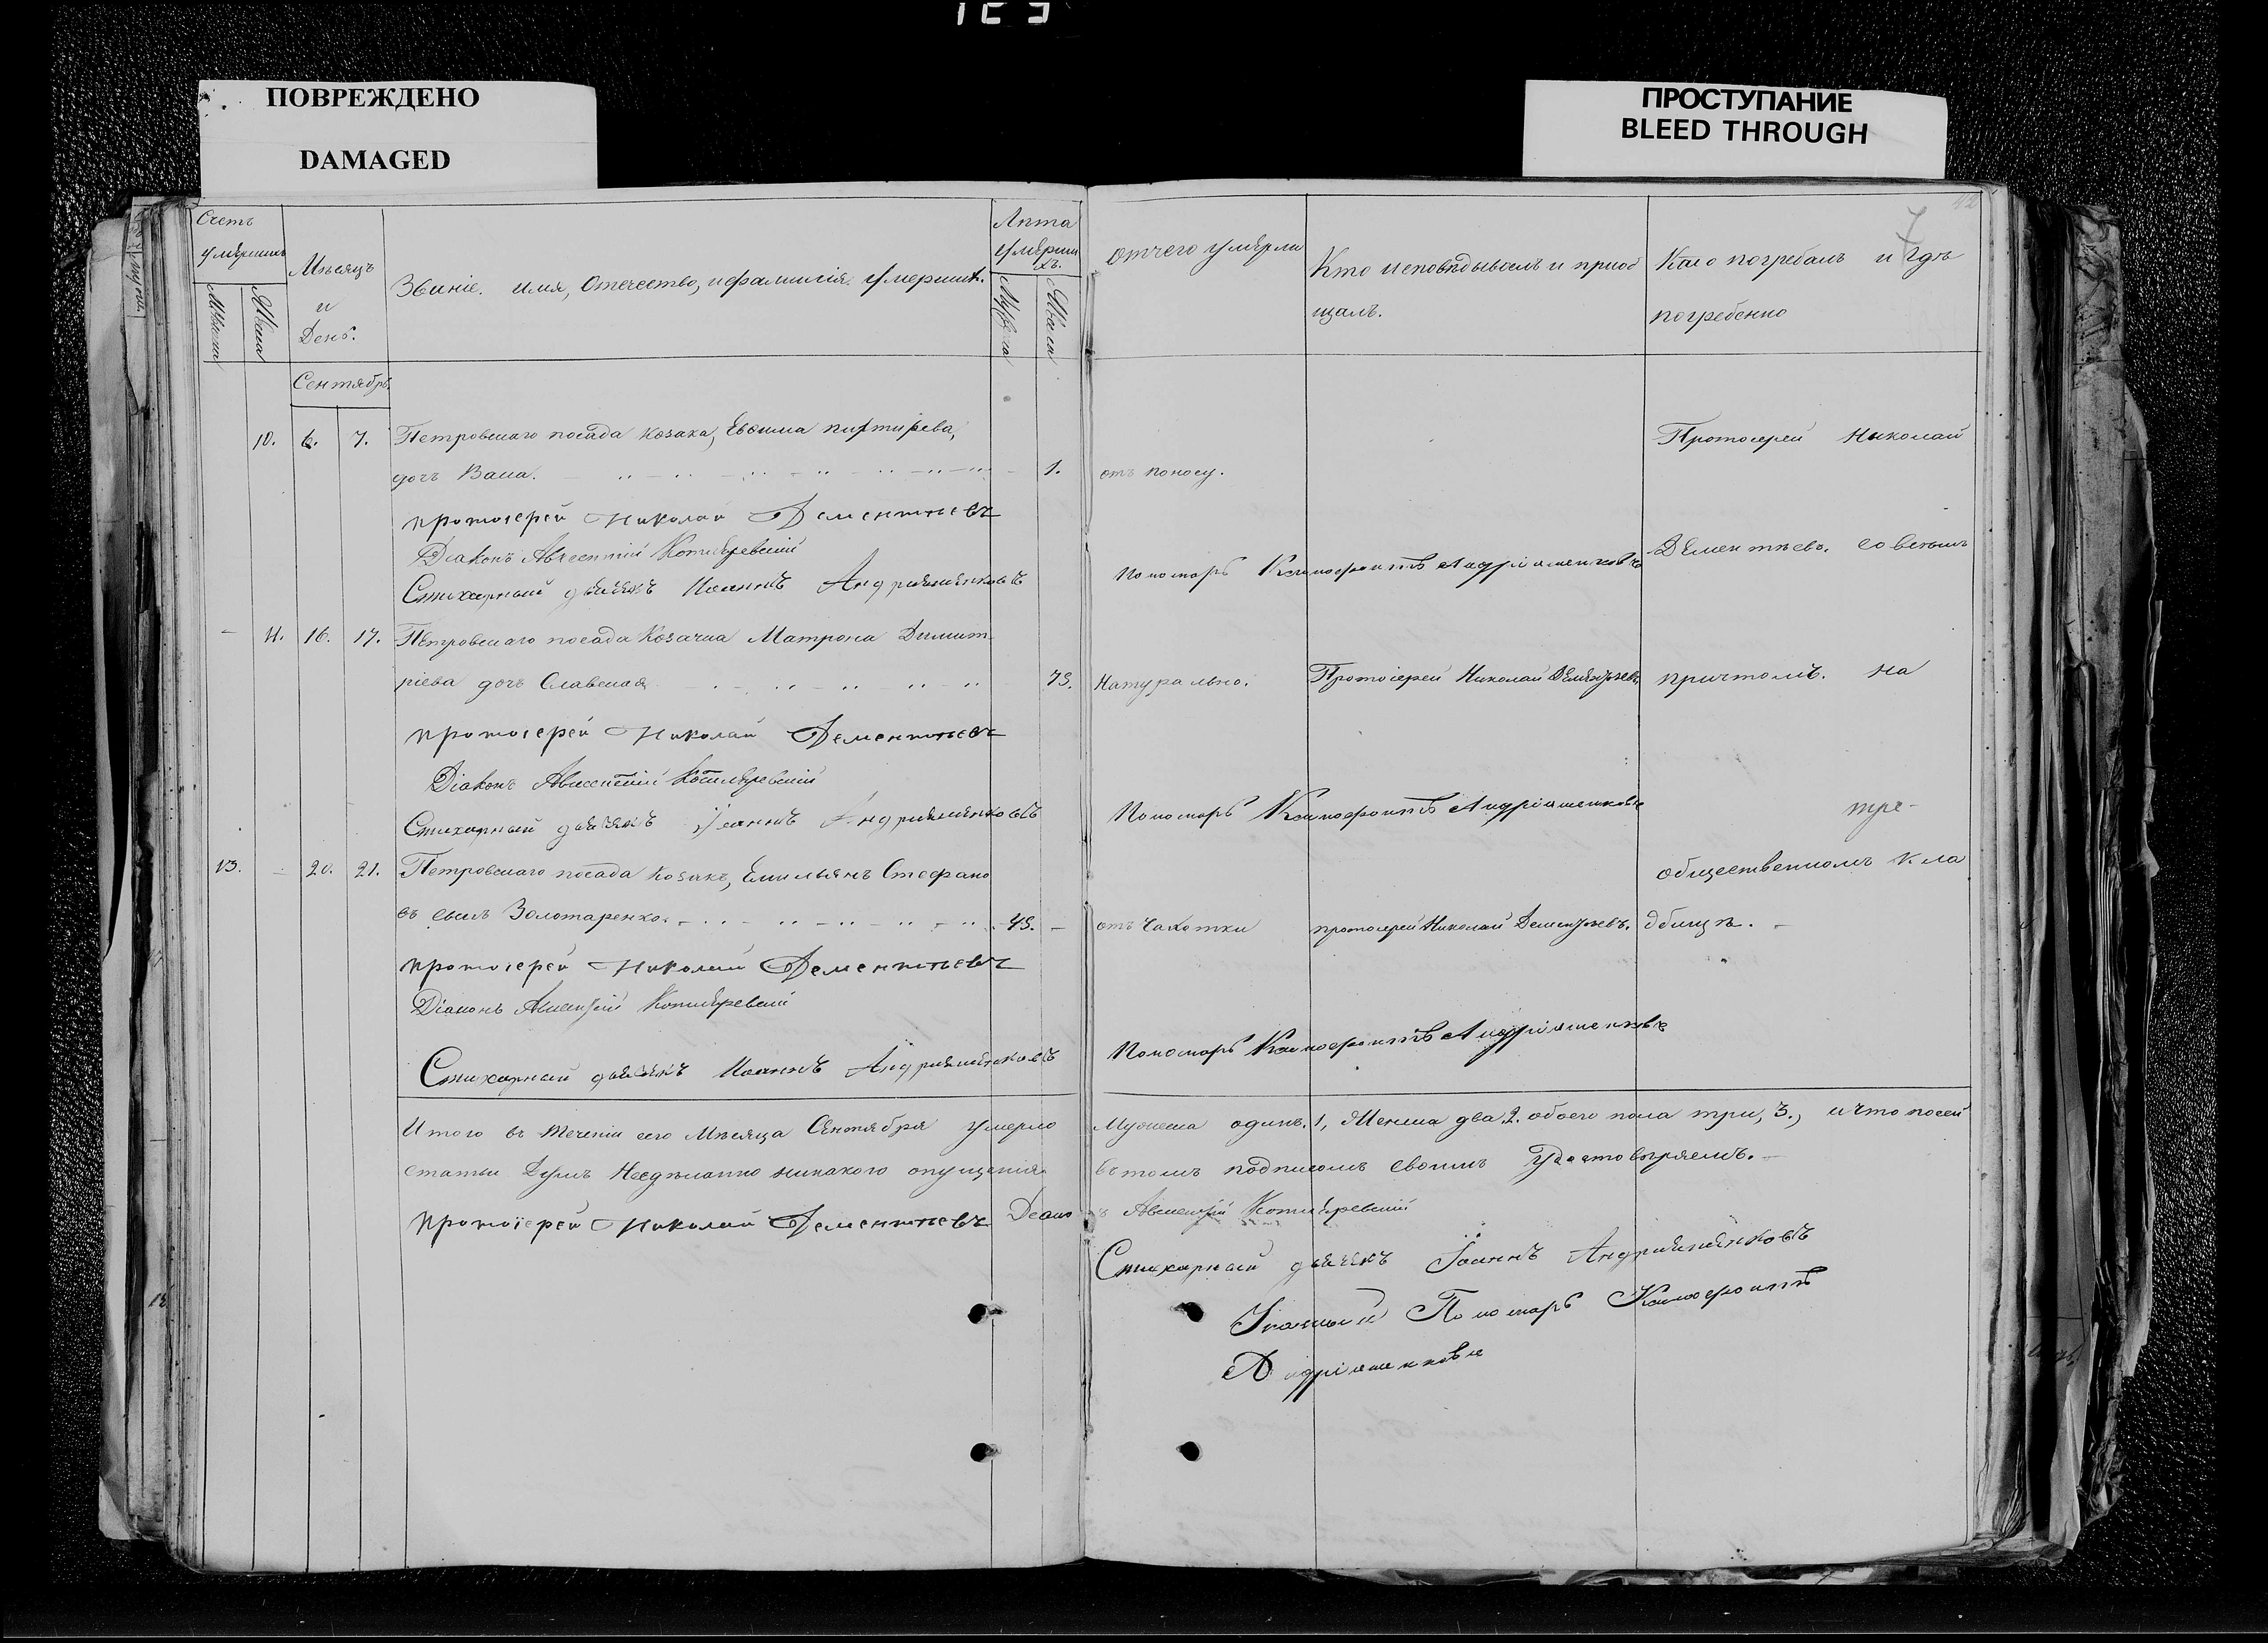 ПОВРЕЖДЕНО
DAMAGED
ПРОСТУПАНИЕ
BLEED THROUGH
42
7
Счетъ
умершихъ
Мѣсяцъ
и
День.
Званіе. имя, Отчество, и фамилія. умершихъ.
Лѣта
умерши
хъ.
отчего умерли
Кто исповѣдывалъ и приоб
щалъ.
Кто погребалъ и гдѣ
погребенно
Сентябрь
10. 6. 7. Петровскаго посада козака,
дочь 1. отъ поносу.
Протоіерей Николай
протоіерей Николай Дементьевъ
Діаконъ Авксентій Котляревскій
Стихарный дьячекъ Иоаннъ Андріяшенковъ
Пономарь Ксенофонтъ Андріяшенковъ
Дементьевъ. со всемъ
11. 16. 17. Петровскаго посада Козачка Матрона Димит
ріева дочь Славская 73. Натурально. Протоіерей Николай Дементьевъ. причтомъ. на
протоіерей Николай Дементьевъ
Діаконъ Авксентій Котляревскій
Стихарный дьячекъ Іоаннъ Андріяшенковъ
Пономарь Ксенофонтъ Андріяшенковъ
13. 20. 21. Петровскаго посада Козакъ, Емильянъ Стефано
въ сынъ Золотаренко. 43. отъ Чахотки протоіерей Николай Дементьевъ.
общественномъ кла
дбищѣ.
протоіерей Николай Дементьевъ
Діаконъ Авксентій Котляревскій
Стихарный дьячекъ Иоаннъ Андріяшенковъ
Пономарь Ксенофонтъ Андріяшенковъ
Итого въ теченіи сего Мѣсяца Сентября умерло Мужеска одинъ. 1, Женска два 2. обоего пола три, 3., и что посей
статьи несдѣланно никакого опущенія въ томъ подписомъ своимъ удостовѣряемъ.
протоіерей Николай Дементьевъ Авксентій Котляревскій
Стихарный дьячекъ Іоаннъ Андріяшенковъ
Пономарь Ксенофонтъ
Андріяшенковъ